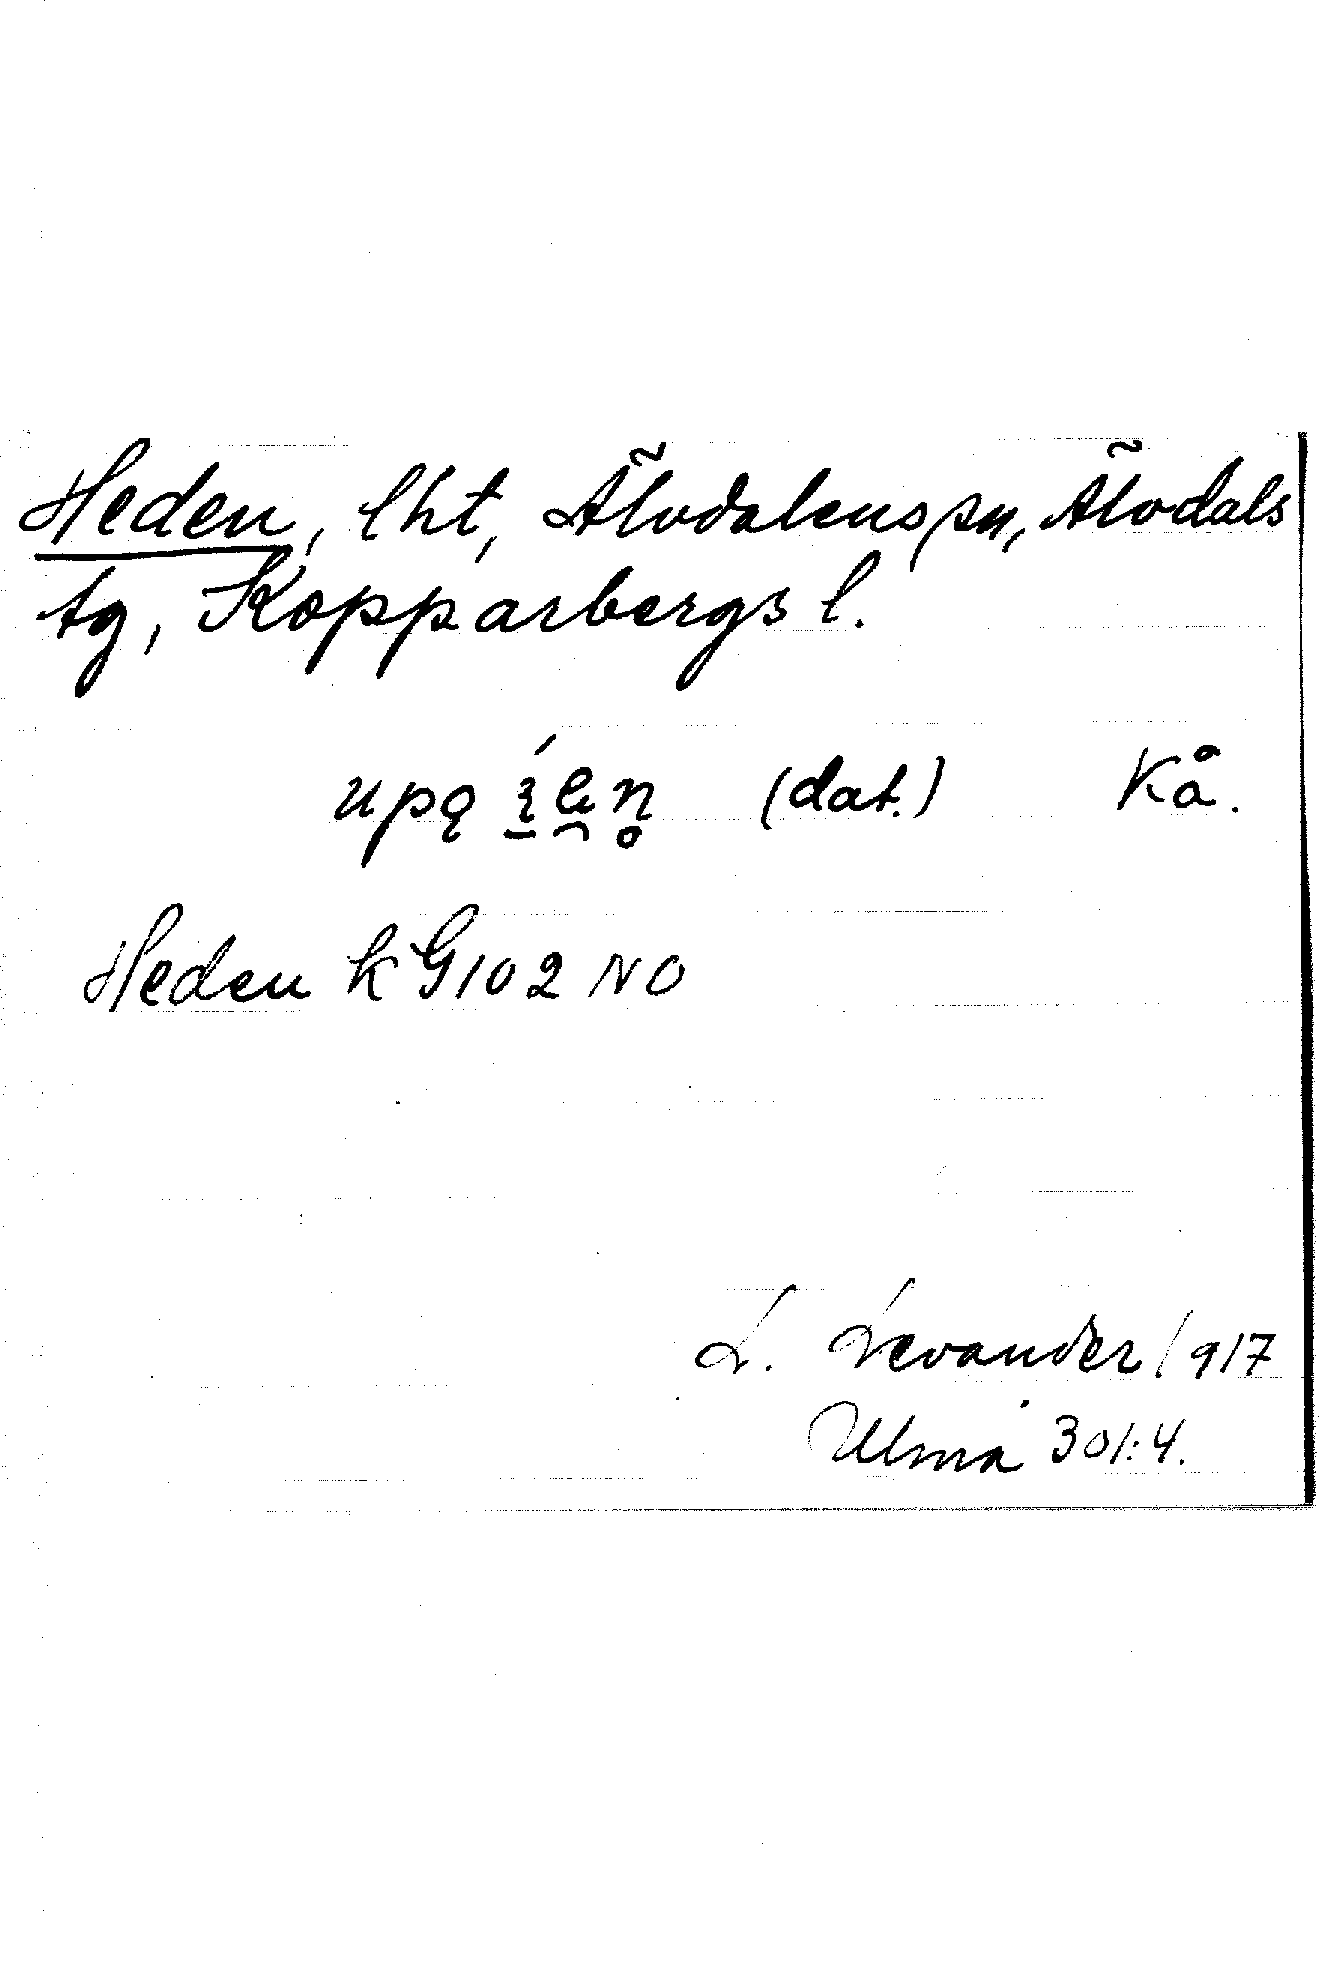 Heden, lht, Älvdalens sn, Älvdals
tg, Kopparbergs l.
(dat.) Kå.
Heden k G102 NO
L. Levander 1917
Ulma 301:4.